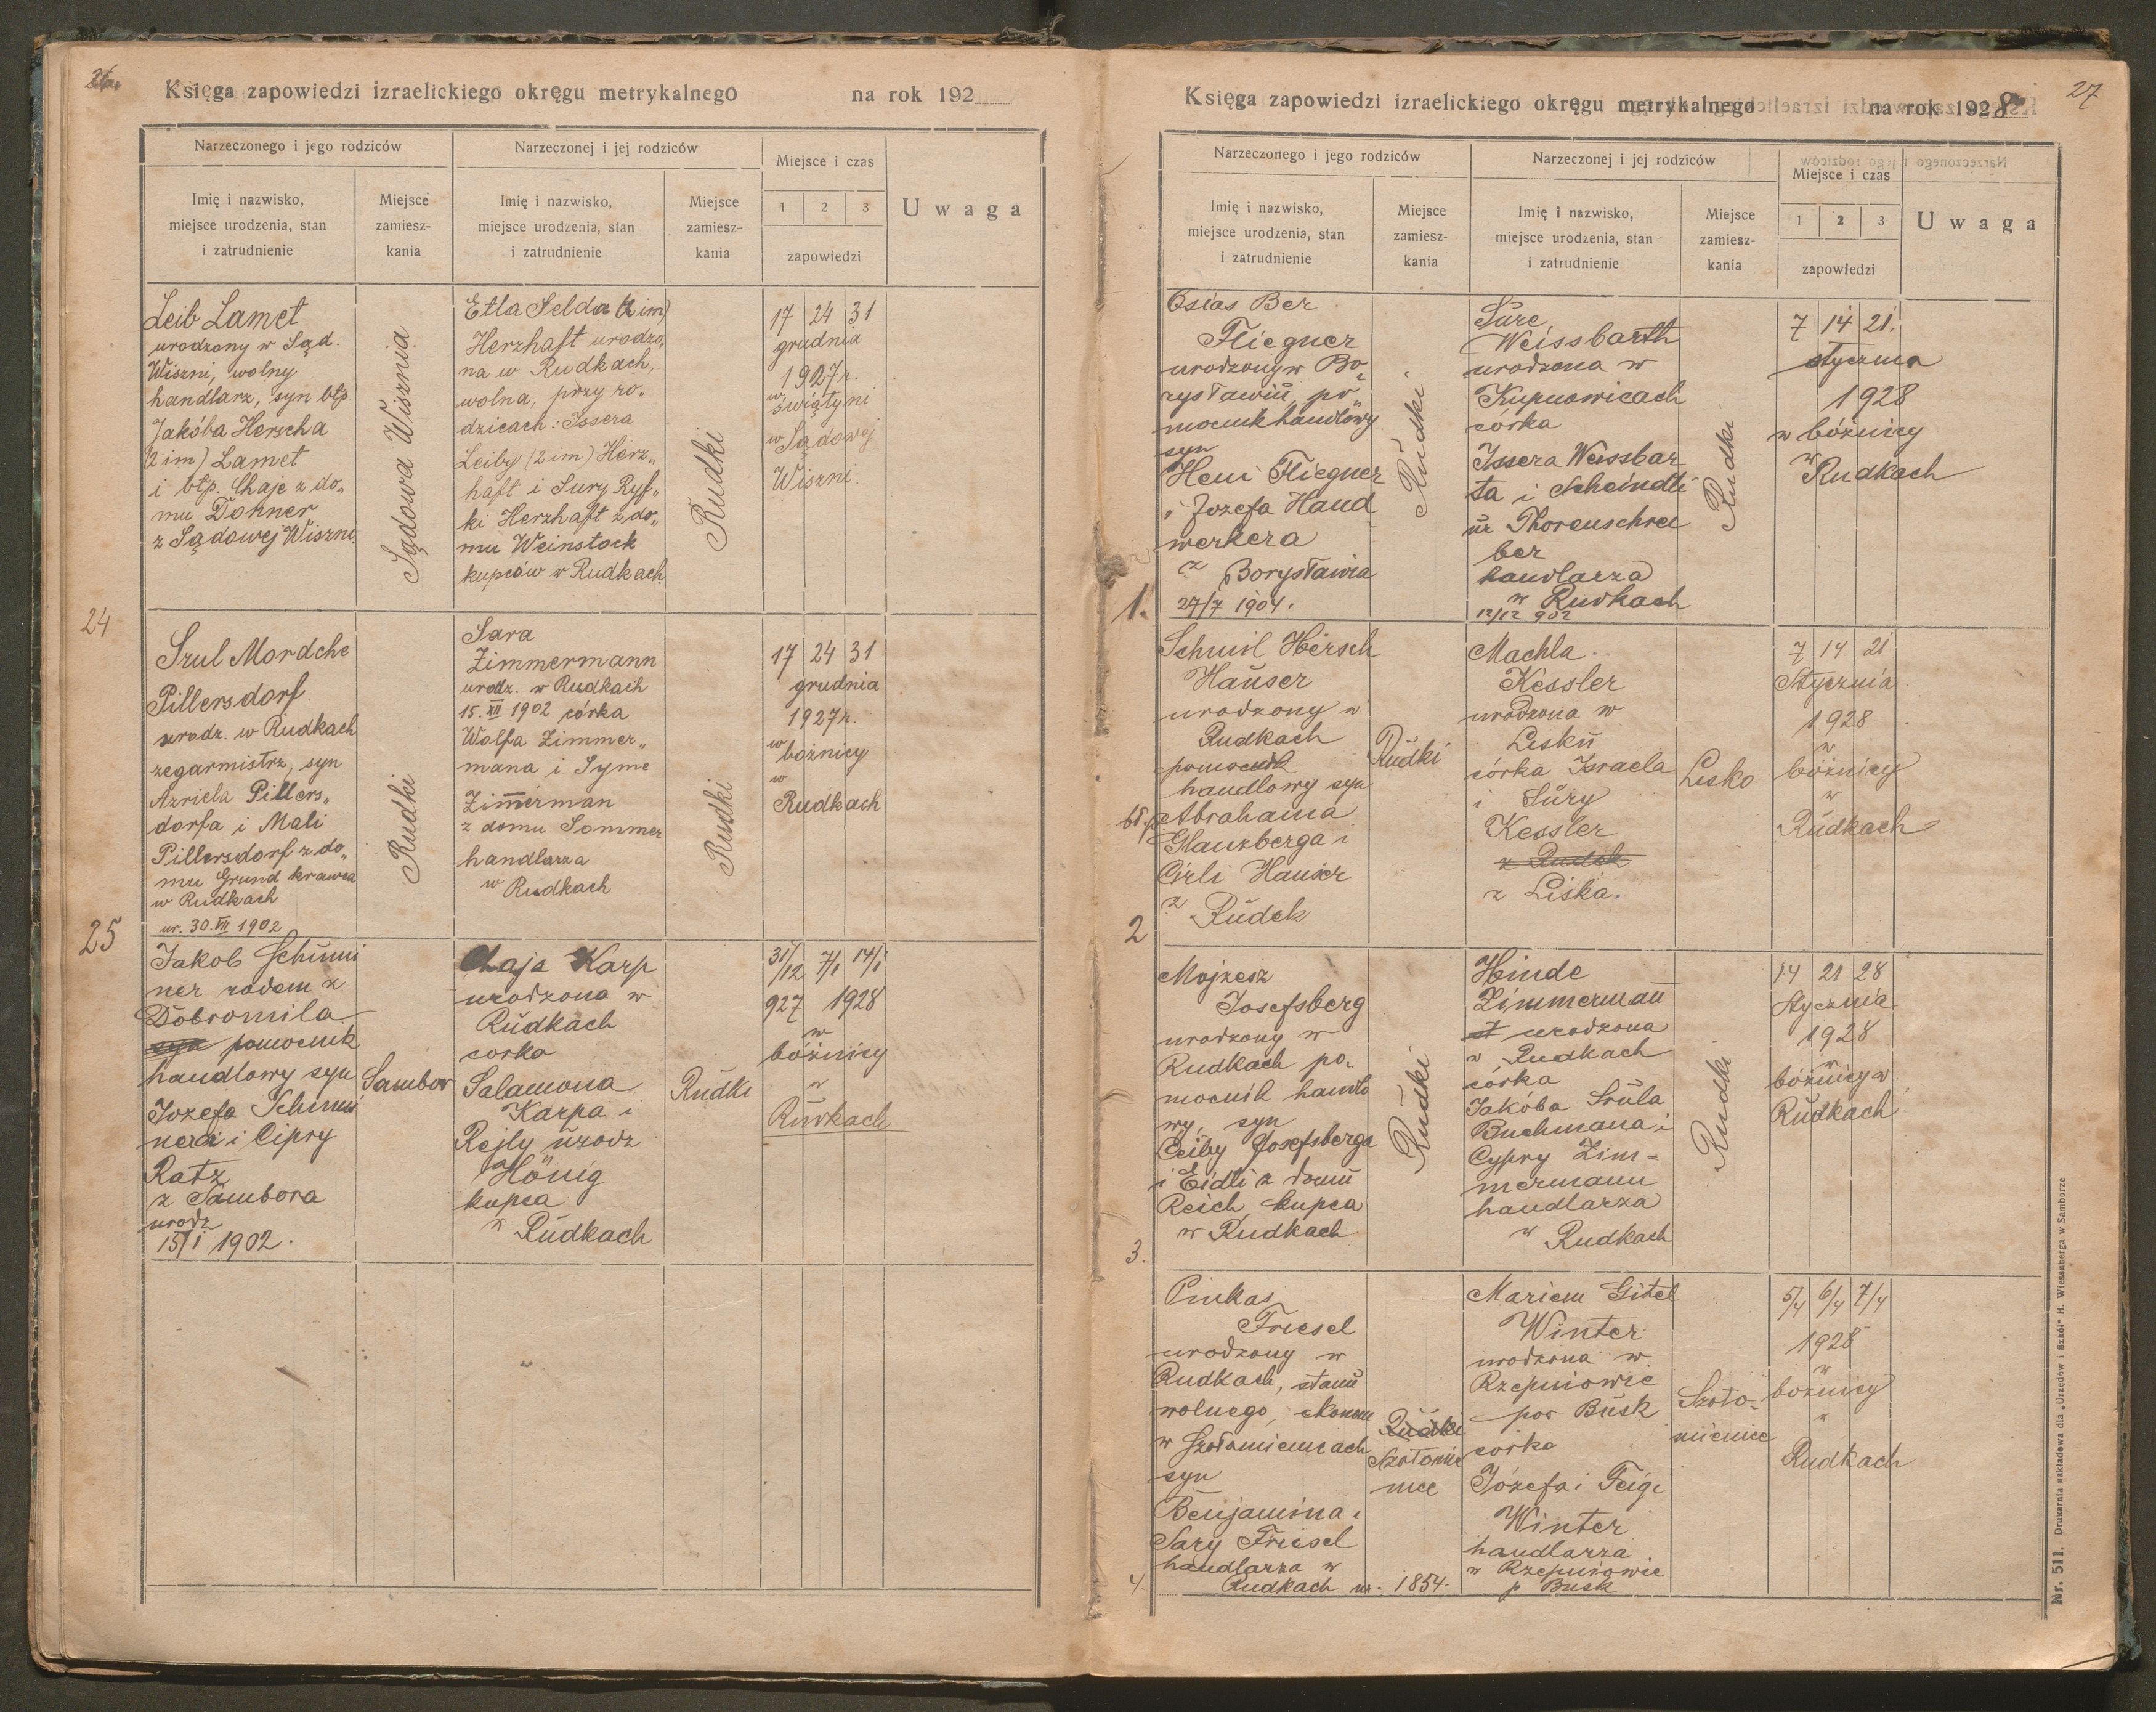 26.
Księga zapowiedzi izraelickiego okręgu metrykalnego na rok 192
Narzeczonego i jego rodziców
Narzeczonej i jej rodziców
Miejsce i czas
Uwaga
Imię i nazwisko,
miejsce urodzenia, stan
i zatrudnienie
Miejsce
zamiesz-
kania
Imię i nazwisko,
miejsce urodzenia, stan
i zatrudnienie
Miejsce
zamiesz-
kania
1 2 3
zapowiedzi
Leib Lamet
urodzony w Sąd.
Wiszni, wolny
handlarz, syn błp.
Jakóba Herscha
(2 im) Lamet
i błp. Chaje z do„
mu Dohner
z Sądowej Wiszni.
Sądowa Wisznia
Etla Selda (2 im)
Herzhaft urodzo„
na w Rudkach,
wolna, przy ro„
dzicach: Issera
Leiby (2 im) Herz„
haft i Sury Ryf„
ki Herzhaft z do„
mu Weinstock
kupców w Rudkach.
Rudki
17 24 31
grudnia
1927r.
w
świątyni
w Sądowej
Wiszni.
24
Szul Mordche
Pillersdorf
urodz. w Rudkach
zegarmistrz, syn
Azriela Pillers„
dorfa i Mali
Pillersdorf z do„
mu Grund krawca
w Rudkach
ur. 30.VII 1902
Rudki
Sara
Zimmermann
urodz. w Rudkach
15.XII 1902 córka
Wolfa Zimmer„
mana i Syme
Zimerman
z domu Sommer
handlarza
w Rudkach
Rudki
17 24 31
grudnia
1927r.
w
bożnicy
w
Rudkach
25
Jakob Schimi
ner rodem z
Dobromila
syn pomocnik
handlowy syn
Jozefa Schimi
nera i Cipry
Ratz
z Sambora
urodz
15/I 1902.
Sambor
Chaja Karp
urodzona w
Rudkach
corka
Salamona
Karpa i
Rejly urodz
Hönig
kupca
w Rudkach
Rudki
31/12 7/1 14/1
927 1928
w
bóżnicy
w
Rudkach
27
Księga zapowiedzi izraelickiego okręgu metrykalnego na rok 1928
Narzeczonego i jego rodziców
Narzeczonej i jej rodziców
Miejsce i czas
Uwaga
Imię i nazwisko,
miejsce urodzenia, stan
i zatrudnienie
Miejsce
zamiesz-
kania
Imię i nazwisko,
miejsce urodzenia, stan
i zatrudnienie
Miejsce
zamiesz-
kania
1 2 3
zapowiedzi
Osias Ber
Fliegner
urodzony w Bo„
rysławiu, po„
mocnik handlowy
syn
Heni Fliegner
i Jozefa Hand
werkera
z Borysławia
27/7 1904.
Rudki
Sure
Weissbarth
urodzona w
Kupnowicach
córka
Issera Weissbar
ta i Scheindli
ur Thorenschrei
ber
handlarza
w Rudkach
12/12 902
Rudki
7 14 21.
stycznia
1928
w bóżnicy
w
Rudkach
1.
Schmil Hersch
Hauser
urodzony w
Rudkach
pomocnik
handlowy syn
bł. p. Abrahama
Glanzberga i
Cirli Hauser
z Rudek
Rudki
Machla
Kessler
urodzona w
Lesku
córka Israela
i Sury
Kessler
z Rudek
z Liska.
Lesko
7 14 21
Stycznia
1928
w
bóżnicy
w
Rudkach
2
Mojżesz
Josefsberg
urodzony w
Rudkach po„
mocnik handlo
wy, syn
Leiby Josefsberga
i Eidli z domu
Reich kupca
w Rudkach
Rudki
Hinde
Zimmerman
urodzona
w Rudkach
córka
Jakóba Srula
Buchmana i
Cypry Zim-
mermann
handlarza
w Rudkach
Rudki
14 21 28
Stycznia
1928
w
bóżnicy w
Rudkach
3.
Pinkas
Friesel
urodzony w
Rudkach, stanu
wolnego, ekonom
w Szołomieńcach
syn
Benjamina i
Sary Friesel
handlarza w
Rudkach ur. 1854.
Rudki
Szołomie
nce
Mariem Gitel
Winter
urodzona w
Rzepniowie
pow Busk
corka
Józefa i Feigi
Winter
handlarza
w Rzepniowie
p Busk
Szoło-
mieńce
5/4 6/4 7/4
1928
w
bożnicy
w
Rudkach
4.
Nr. 511. Drukarnia nakładowa dla „Urzędów i Szkół" H. Wiesenberga w Samborze